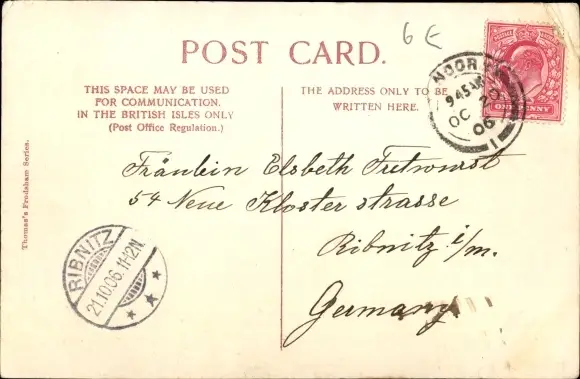 6 E
POST CARD.
THIS SPACE MAY BE USED
FOR COMMUNICATION.
IN THE BRITISH ISLES ONLY
(Post Office Regulation.)
THE ADDRESS ONLY TO BE
WRITTEN HERE.
9.45 AM
OC 20
06
1
ONE PENNY
Thomas's Frodsham Series.
Fräulein Elsbeth
54 Neue Kloster strasse
Ribnitz i/m.
Germany
RIBNITZ
21.10.06.11-12N.